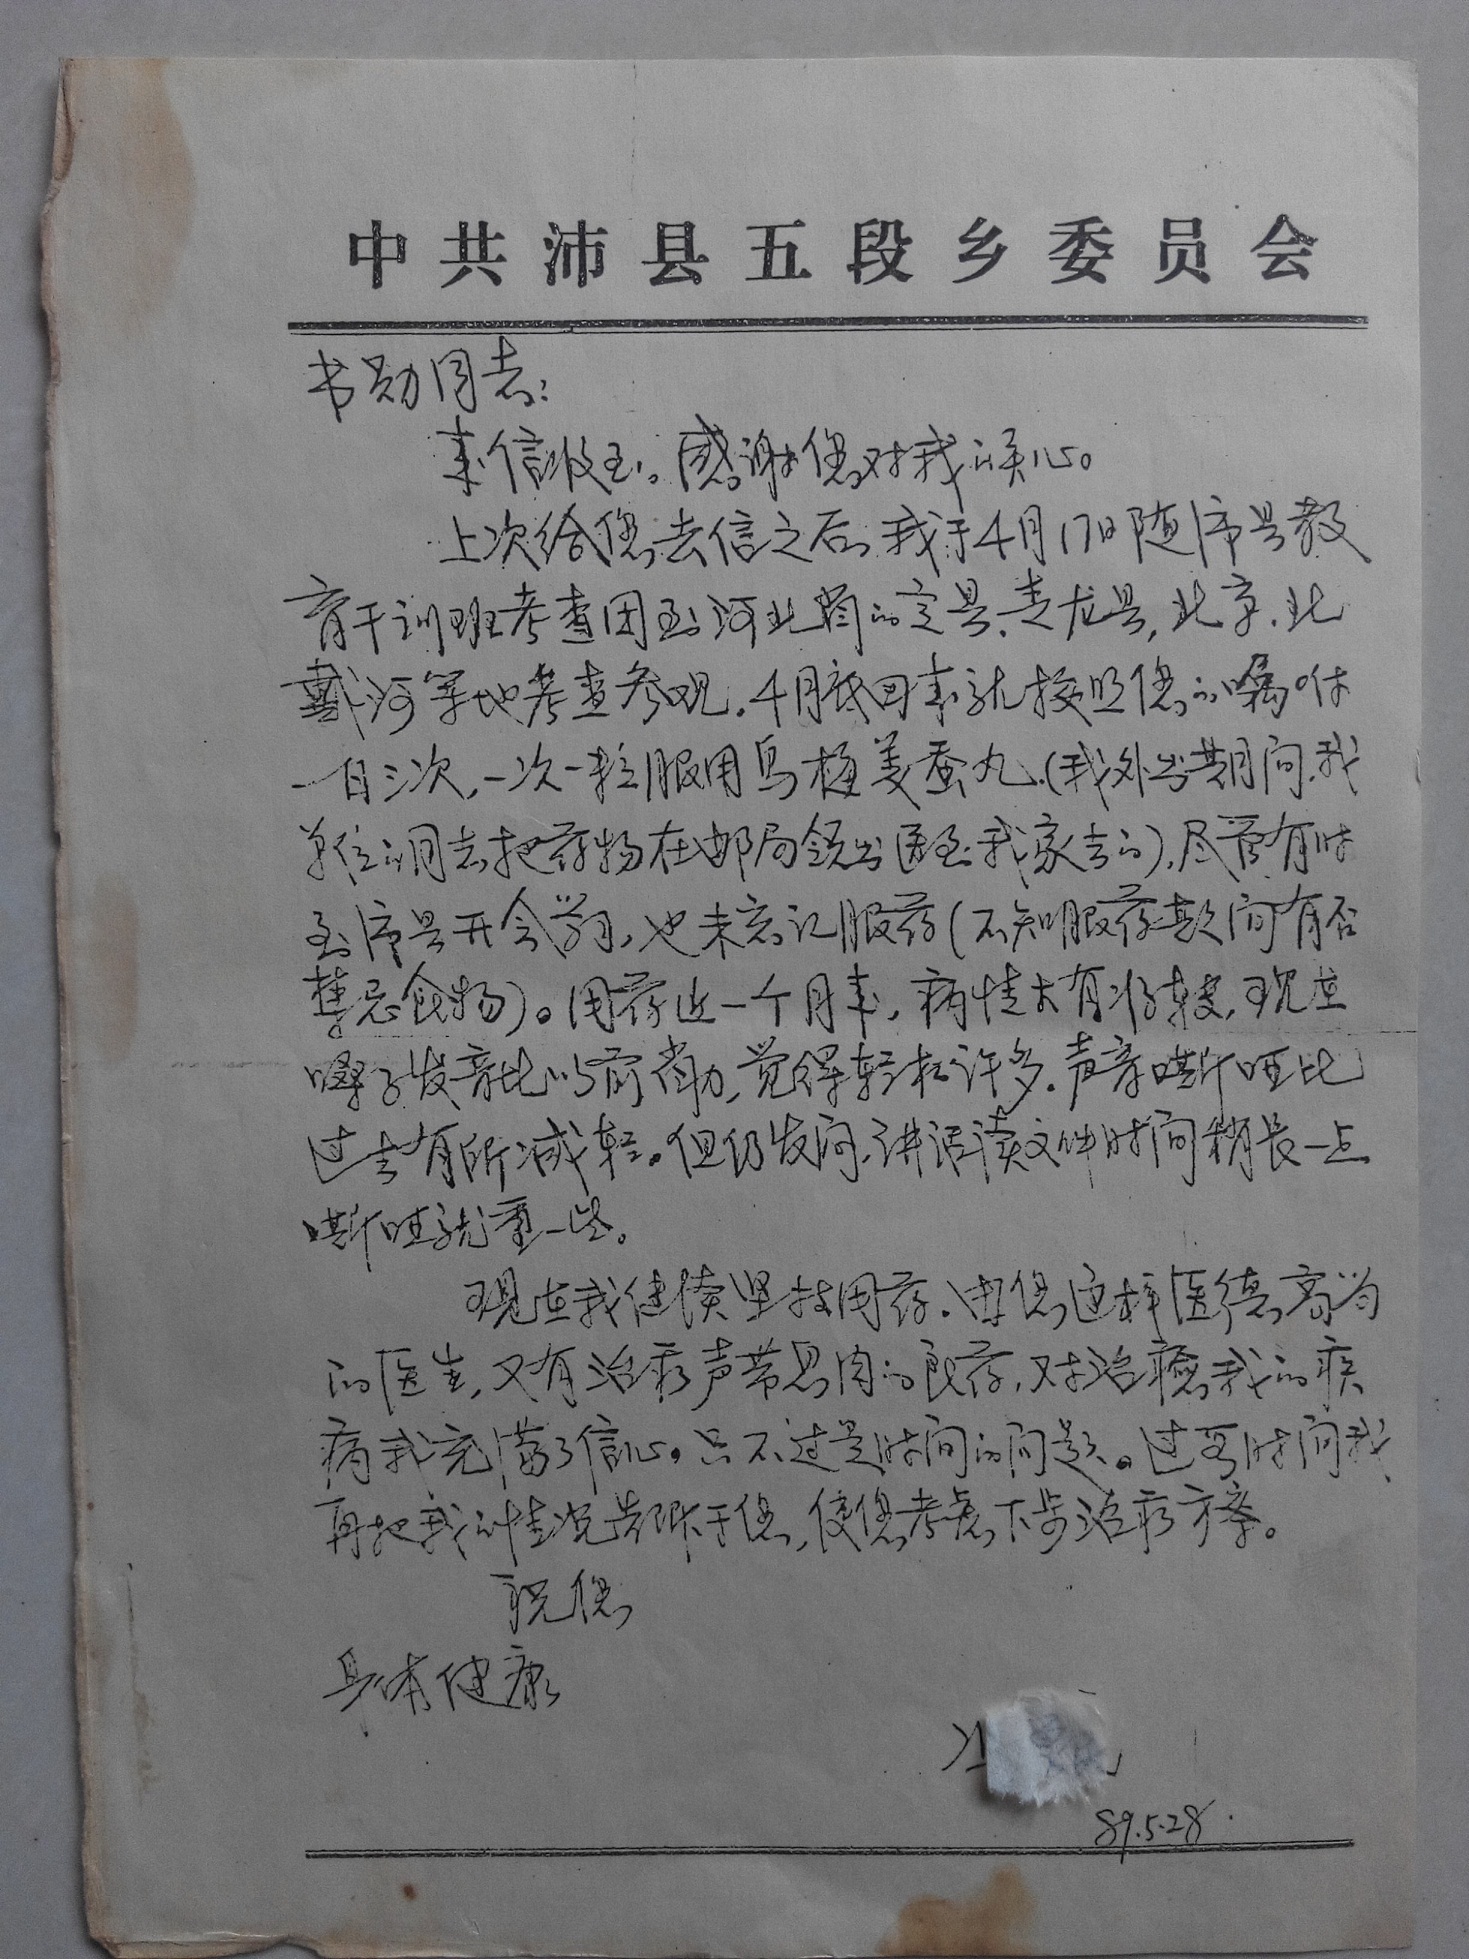 中共沛县五段乡委员会
书勋同志:
来信收到。感谢您对我的关心。
上次给您去信之后,我于4月17日随沛县教
育干训班考查团到河北省的定县、青龙县,北京、北
戴河等地考查参观。4月底回来就按照您的嘱咐
一日三次,一次一粒服用乌梅姜蚕丸(我外出期间,我
单位的同志把药物在邮局领出送到我家去的),尽管有时
到沛县开会学习,也未忘记服药(不知服药期间有否
禁忌食物)。用药近一个月来,病情大有好转,现在
嗓子发音比以前省力,觉得轻松许多。声音嘶哑比
过去有所减轻。但仍发闷,讲话读文件时间稍长一点
嘶哑就重一些。
现在我继续坚持用药。由您这样医德高尚
的医生,又有治疗声带息肉的良药,对治愈我的疾
病我充满了信心。只不过是时间的问题。过些时间我
再把我的情况告诉于您,使您考虑下步治疗方案。
祝您
身体健康
89.5.28.